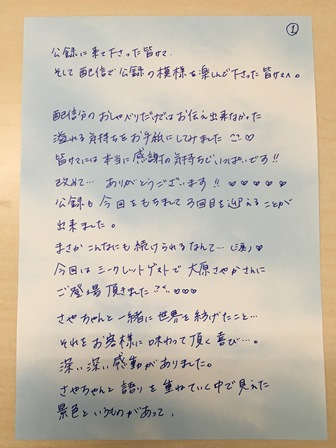 ①
公録に来て下さった皆サマ、
そして配信で公録の模様を楽しんで下さった皆サマへ。
配信分のおしゃべりだけではお伝え出来なかった
溢れる気持ちをお手紙にしてみました♡
皆サマには本当に感謝の気持ちでいっぱいです!!
改めて… ありがとうございます!! ♡♡♡♡♡
公録も今回をもちまして3回目を迎えることが
出来ました。
まさかこんなにも続けられるなんて…(涙)♡
今回はシークレットゲストで大原さやかさんに
ご登場頂きました♡♡♡
さやちゃんと一緒に世界を紡げたこと…
それをお客様に味わって頂く喜び…。
深い深い感動がありました。
さやちゃんと語りを重ねていく中で見えた
景色というものがあって、